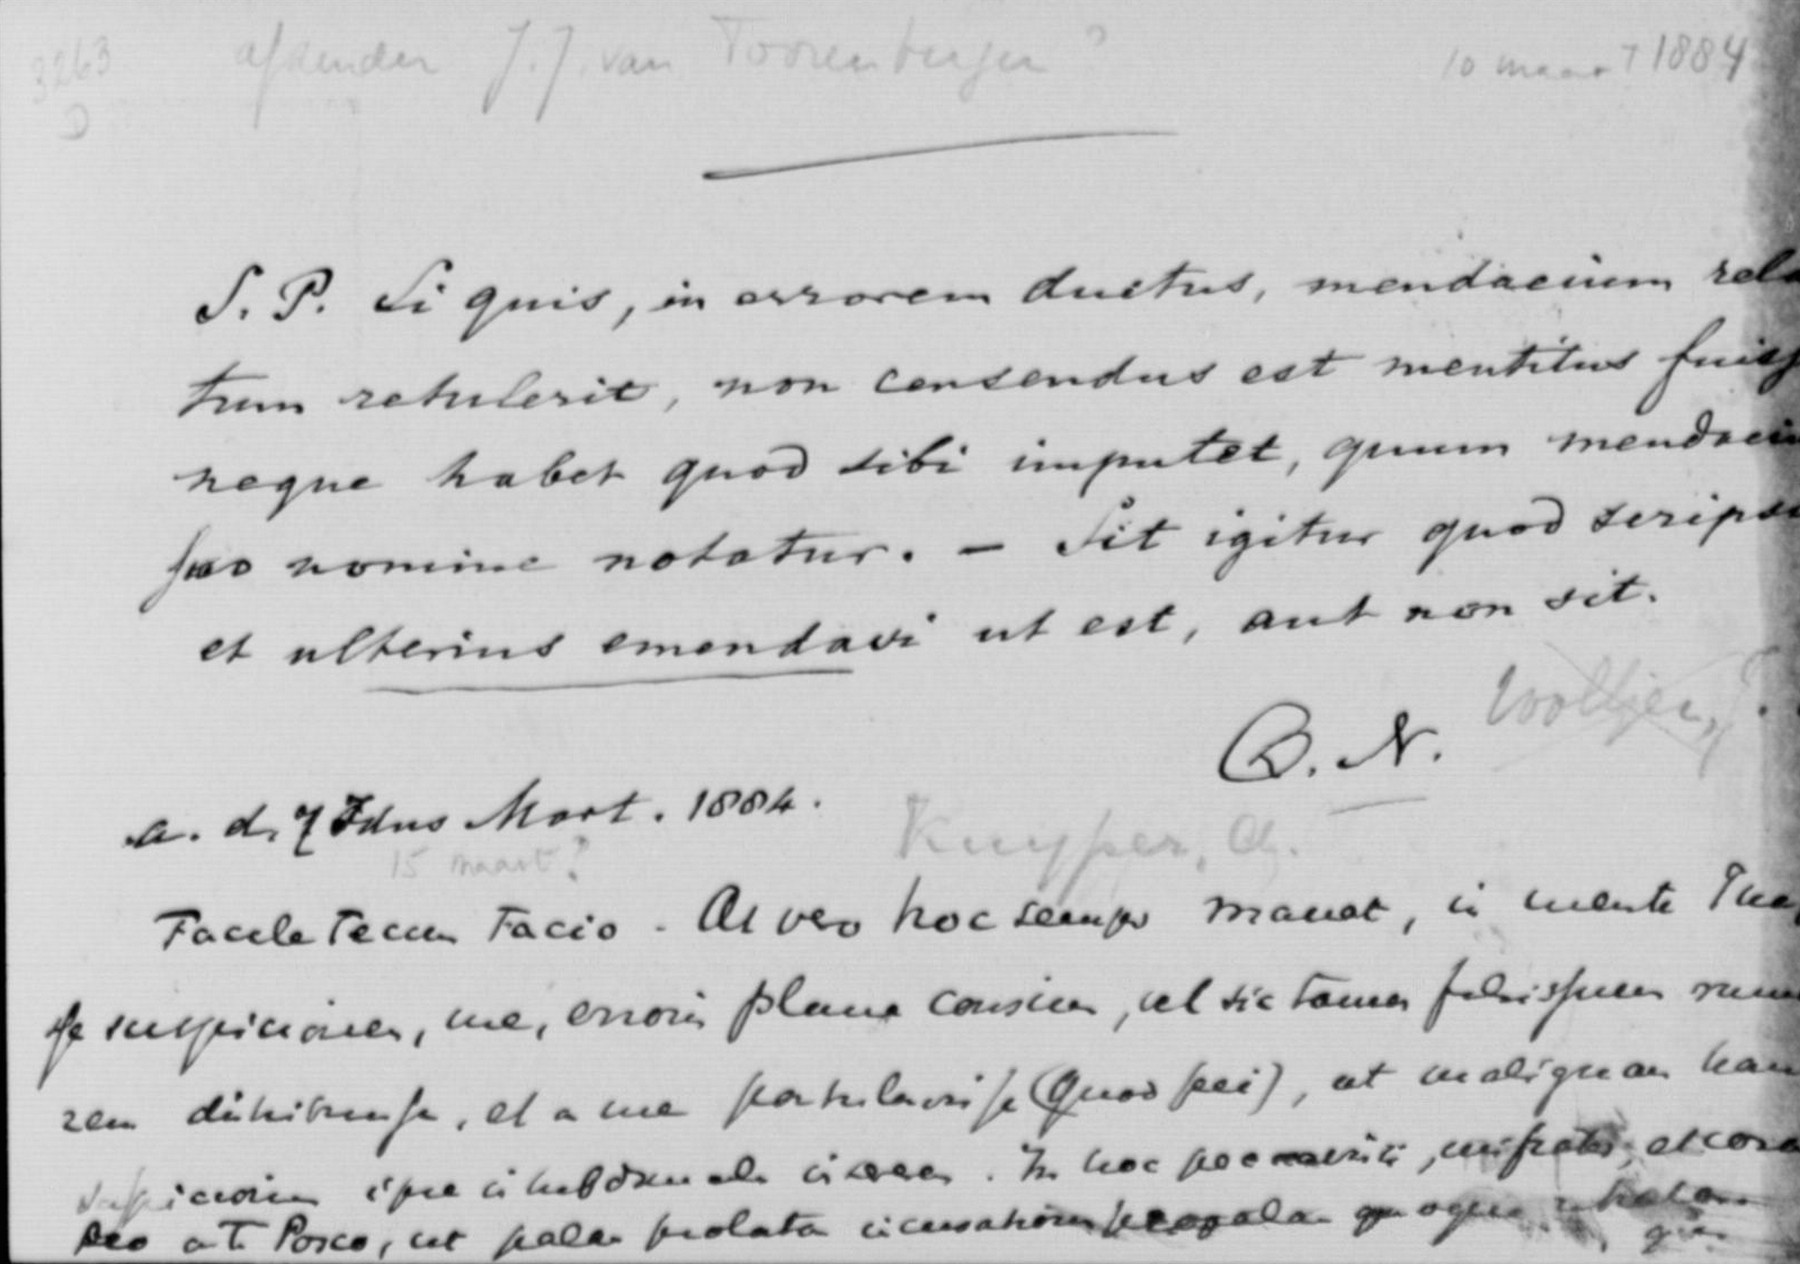 3263 afzender J.J. van Toorenbergen? 10 maart 1884
D
S. P. Si quis, in errorem ductus, mendacium rela
tum retulerit, non censendus est mentitus fuiss
neque habet quod sibi imputet, quum mendaci
suo nomine notatur. — Sit igitur quod scripsi
et ulterius emendavi ut est, aut non sit.
Woltjer, J.
B. N.
a. d. 7 Idus Mart. 1884.
Kuyper, A.
15 maart?
Facile tecum facio. At vero hoc semper manet, in mente tua
suspicionem, me, erroris plane conscium, vel sic tamen
, et a me postulavisse (quod feci), ut malignam han
suspicionem ipse in hebdomade . In hoc peccavisti, mi frater, et cora
Deo a te posco, ut palam prolata quoque